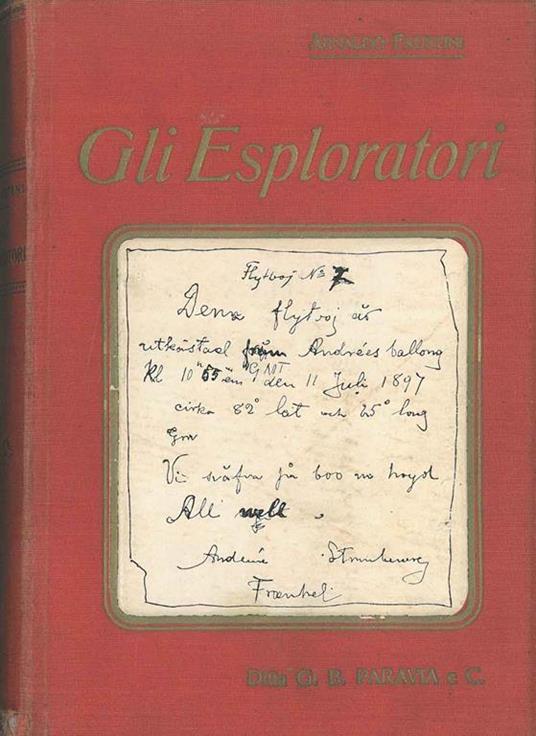 ARNALDO FAUSTINI
Gli Esploratori
Flytboj No 7
Denna flytboj är
utkastad från Andrées ballong
Kl 10 55 em G.M.T. den 11 Juli 1897
cirka 82° lat och 25° long
Grw
Vi sväfva på 600 m hojd
All well.
Andrée Strindberg
Frænkel
Ditta G. B. PARAVIA e C.